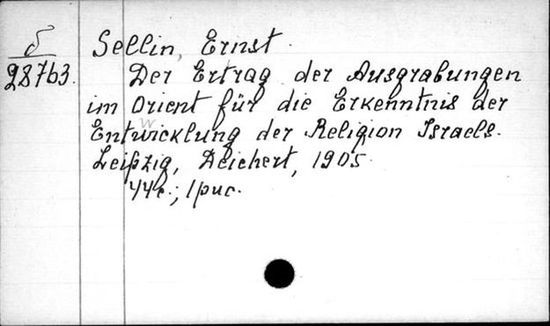 δ
28763.
Sellin, Ernst.
Der Ertrag der Ausgrabungen
im Orient für die Erkenntnis der
Entwicklung der Religion Israels.
Leipzig, Deichert, 1905.
44c.; 1 рис.